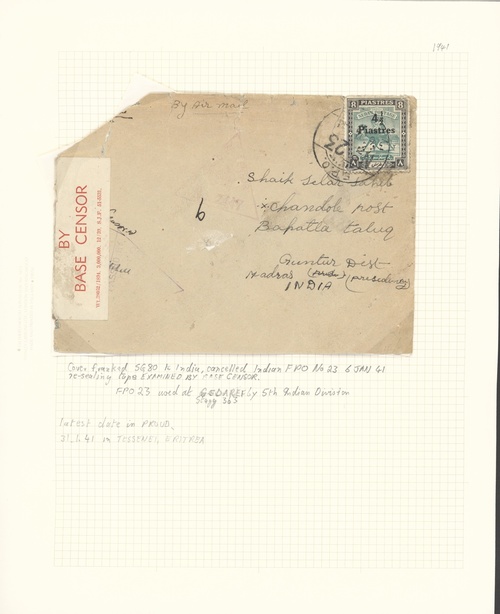 1941
By Air mail
8 PIASTRES 8
4½
Piastres
23
BY
BASE CENSOR
Shaik Selar Saheb
Chandole Post
Bapatla taluq
9
Guntur Dist
Madras (Presidency)
INDIA
Cover franked SG80 to India, cancelled Indian FPO No 23 6 JAN 41
re-sealing tape EXAMINED BY BASE CENSOR.
FPO 23 used at GEDAREF by 5th Indian Division
latest date in PROUD,
31.1.41 in TESSENEI, ERITREA